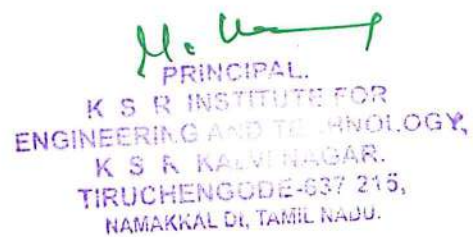 PRINCIPAL.
K S R INSTITUTE FOR
ENGINEERING AND TECHNOLOGY,
K S R KALVI NAGAR.
TIRUCHENGODE-637 215,
NAMAKKAL DI, TAMIL NADU.